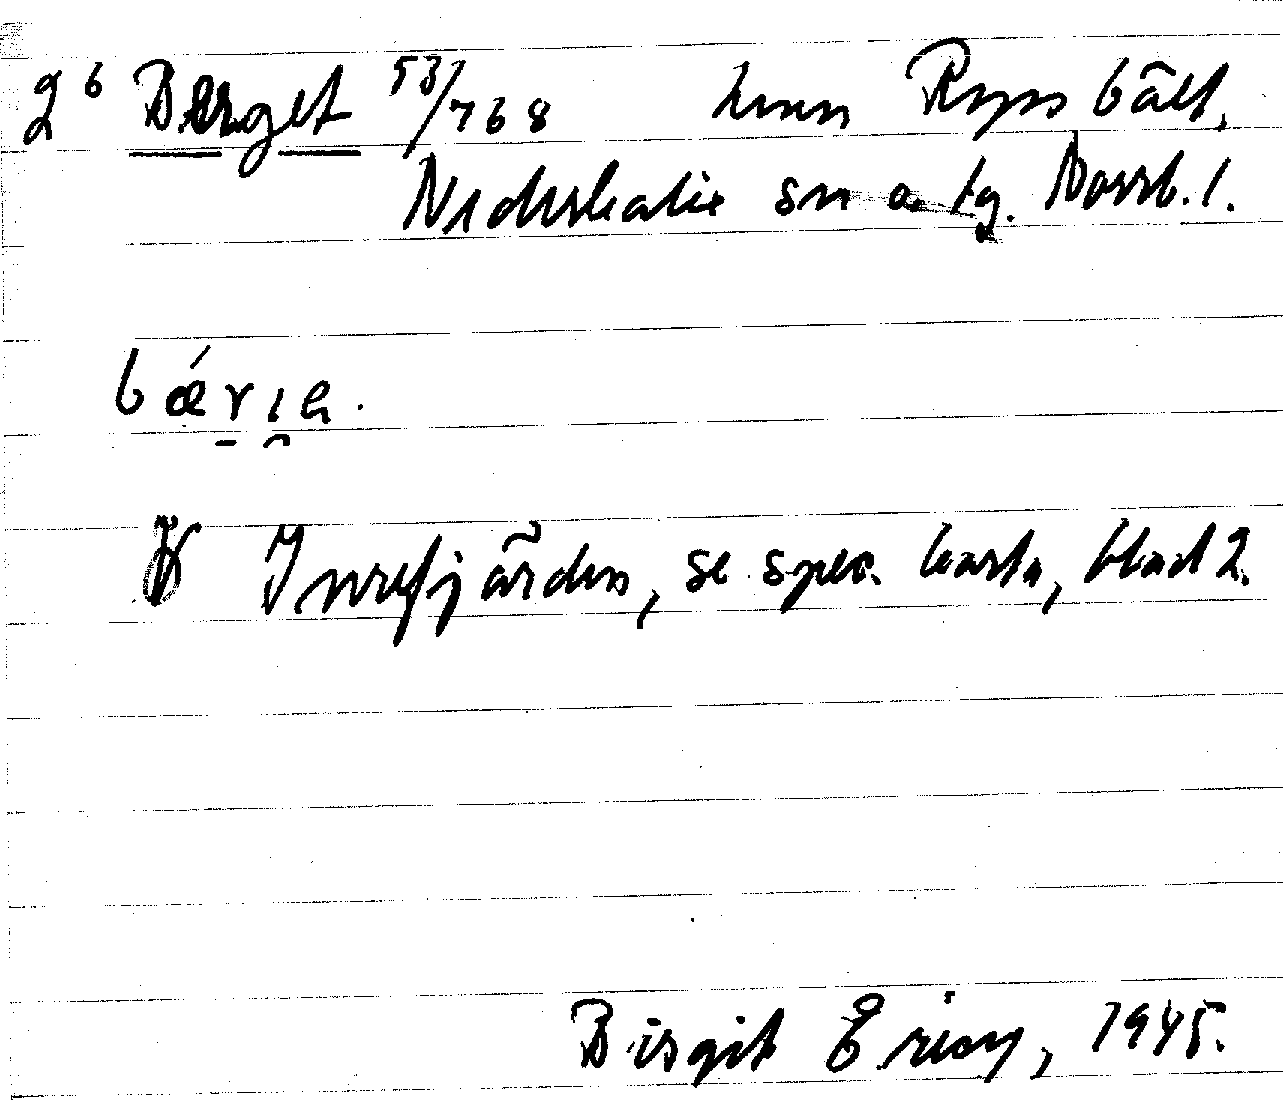 2 6 Berget 53/768 hmn Rypsbält,
Nederkalix sn o. tg. Norrb. l.
bǽrıa.
V Inrefjärden, se spec. karta, blad 2.
Birgit Ericy, 1945.